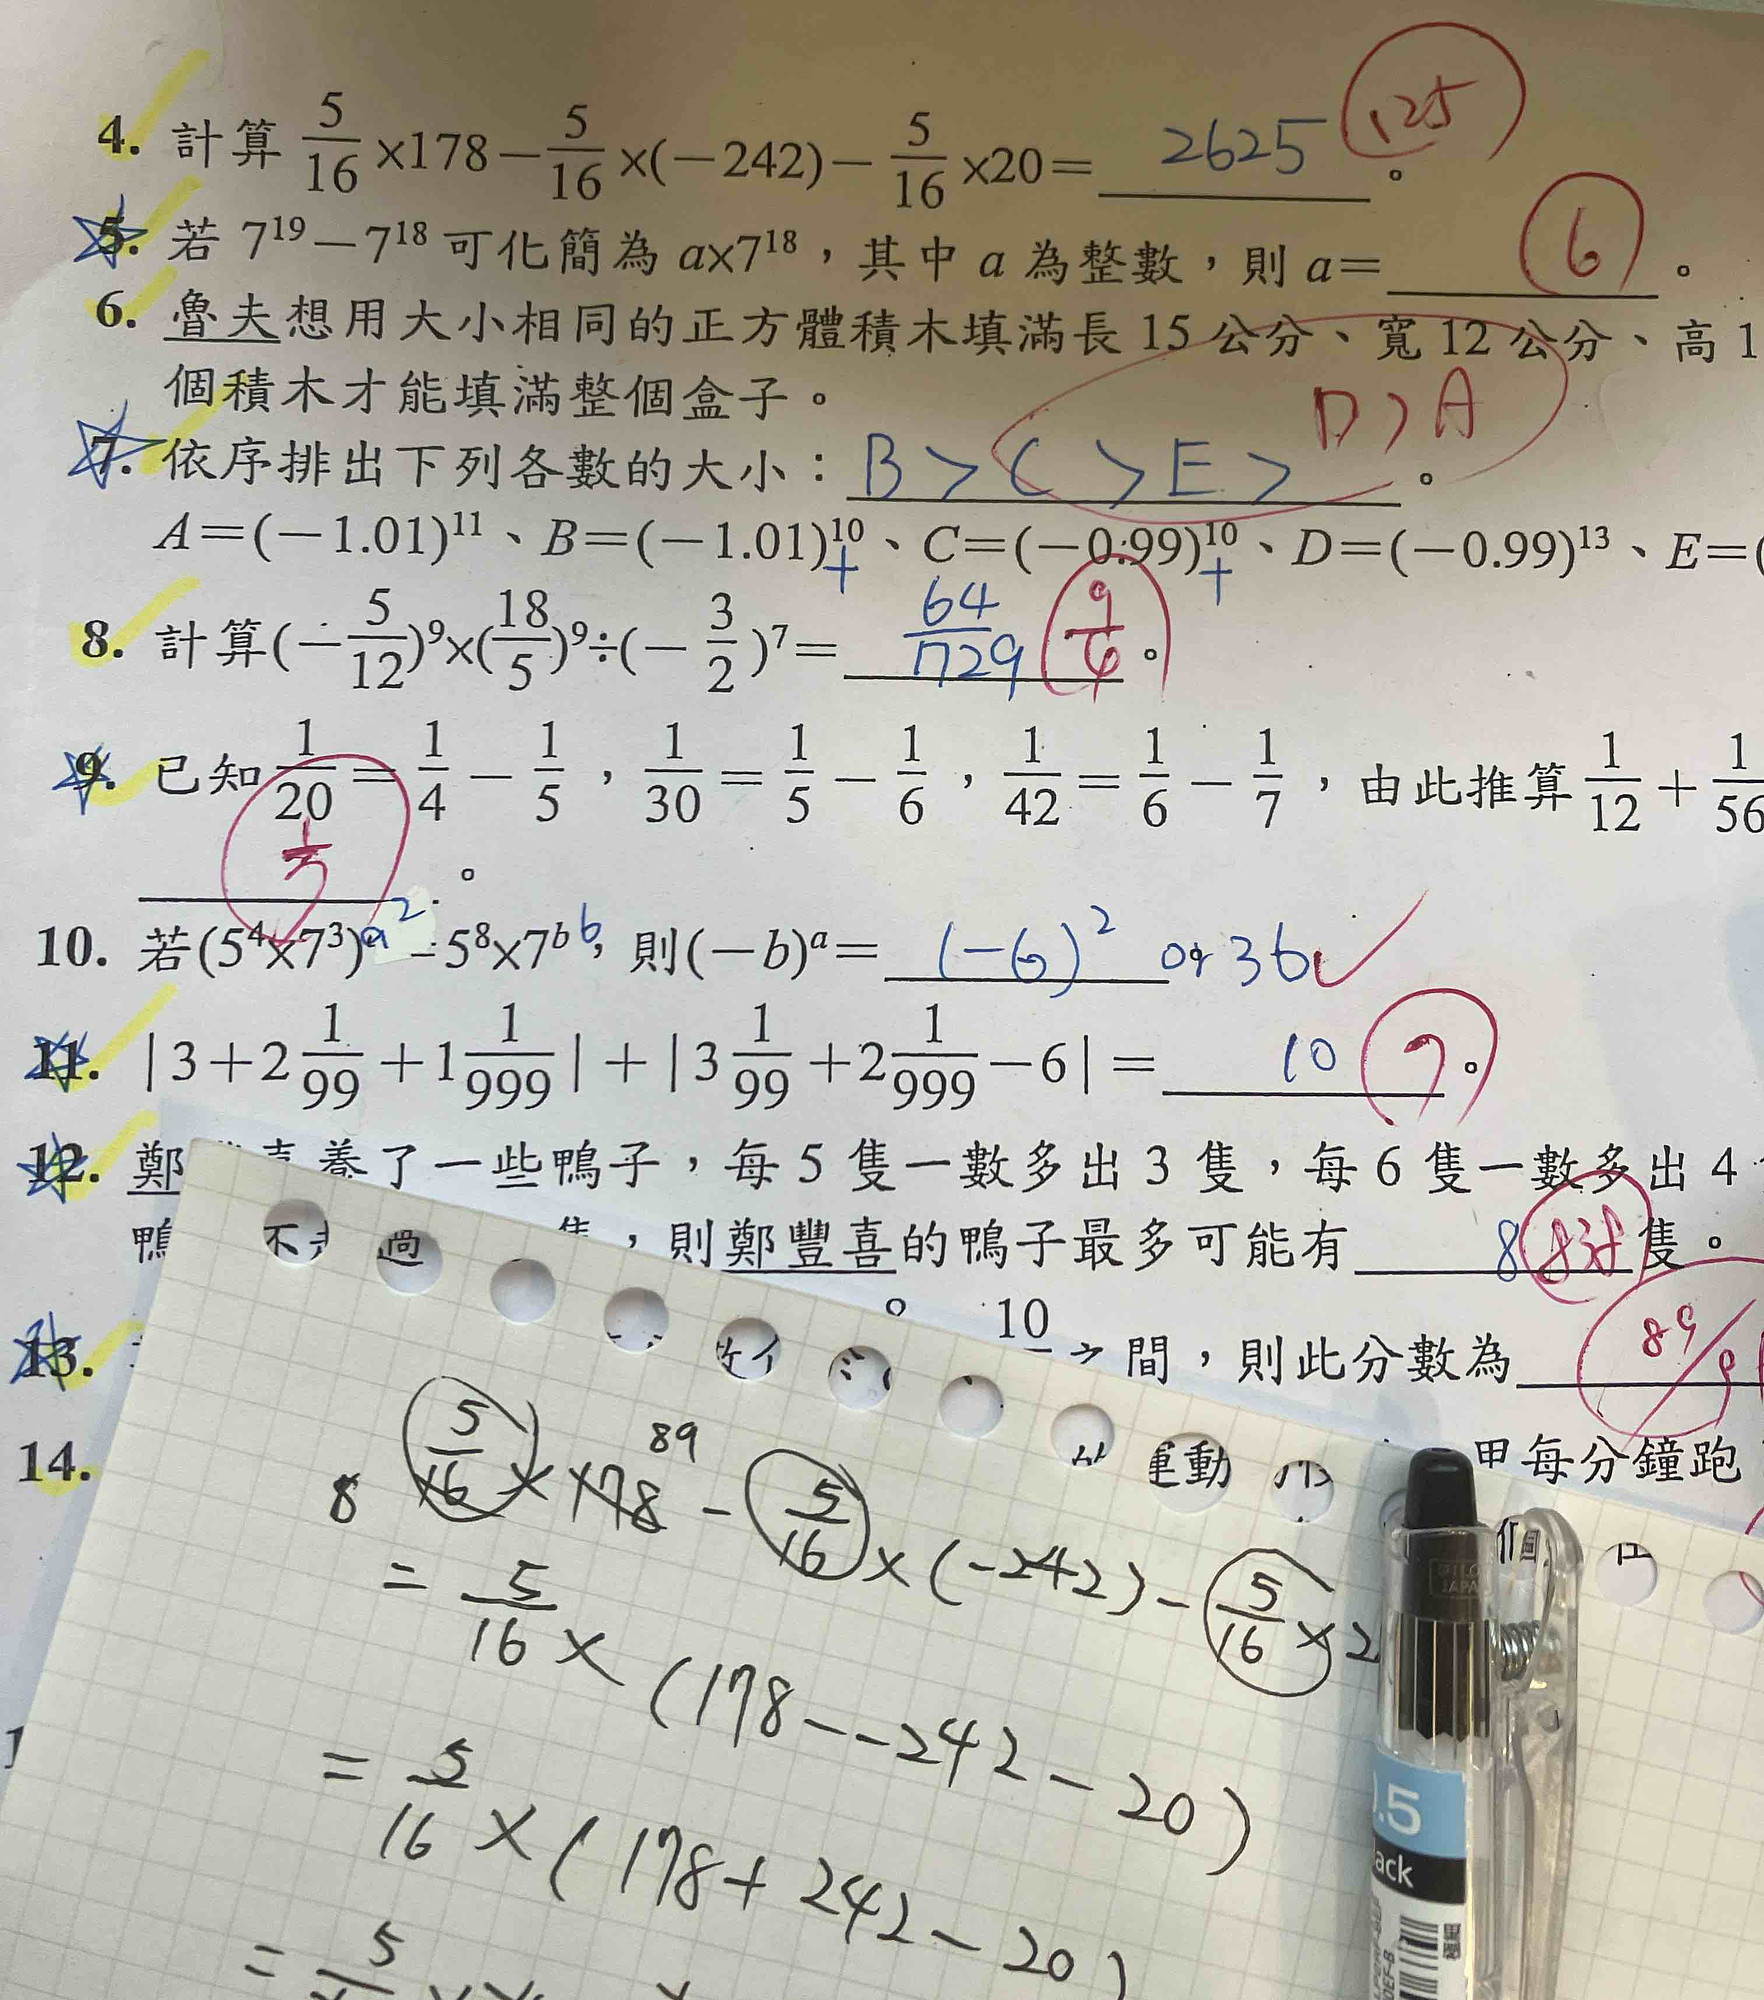 4. 計算 5/16 ×178－5/16 ×(－242)－5/16 ×20＝ 2625 125 。
5. 若 7^19－7^18 可化簡為 a×7^18，其中 a 為整數，則 a＝ 6 。
6. 魯夫想用大小相同的正方體積木填滿長 15 公分、寬 12 公分、高 1
個積木才能填滿整個盒子。
7. 依序排出下列各數的大小： B > C > E > D > A 。
A＝(－1.01)^11、B＝(－1.01)^10、C＝(－0.99)^10、D＝(－0.99)^13、E＝(
+ +
8. 計算(－5/12)^9×(18/5)^9÷(－3/2)^7＝ 64/729 9/4 。
9. 已知 1/20＝1/4－1/5，1/30＝1/5－1/6，1/42＝1/6－1/7，由此推算 1/12＋1/56
1/3 。
10. 若(5^4×7^3)^a 2 = 5^8×7^b 6，則(－b)^a＝ (-6)^2 or 36
11. |3＋2 1/99＋1 1/999|＋|3 1/99＋2 1/999－6|＝ 10 7 。
12. 鄭 喜養了一些鴨子，每 5 隻一數多出 3 隻，每 6 隻一數多出 4
鴨 不 過 隻，則鄭豐喜的鴨子最多可能有 8 838 隻。
13. 10 之間，則此分數為 89/9
14. 運動 甲每分鐘跑
個
8 5/16 × 178 89 - 5/16 × (-242) - 5/16 × 2
= 5/16 × (178 - -242 - 20)
= 5/16 × (178 + 242 - 20)
= 5
PILOT
JAPAN
.5
ack